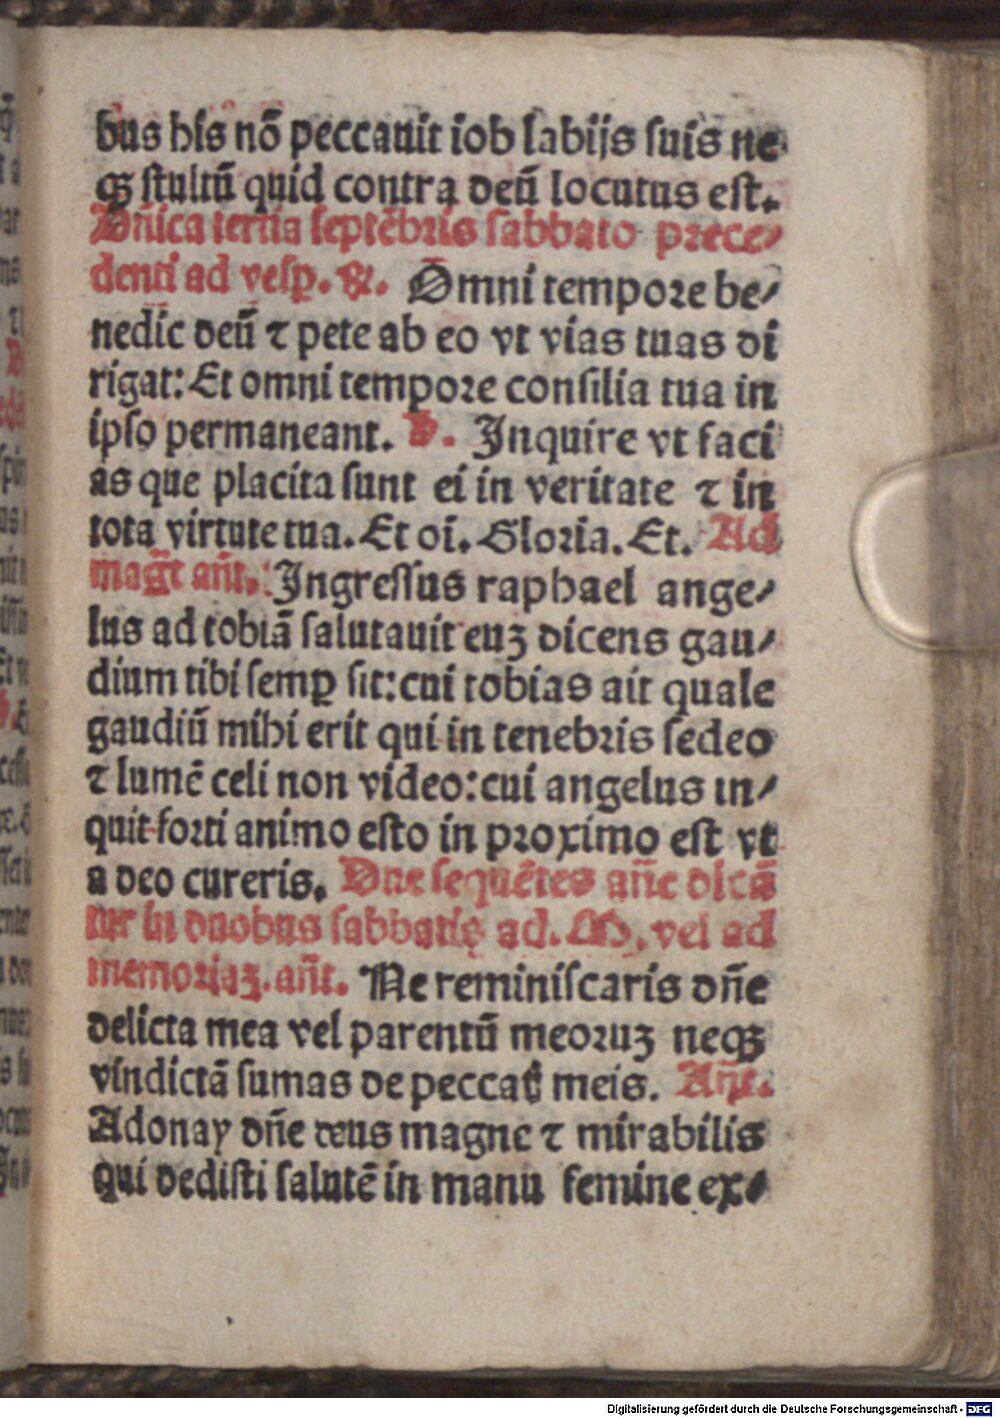 bus his nō peccauit iob labijs suis ne
qꝫ stultū quid contra deū locutus est.
Dñica tertia septēbris sabbato prece⸗
denti ad vesp. ℟. Omni tempore be⸗
nedic deū ⁊ pete ab eo vt vias tuas di
rigat: Et omni tempore consilia tua in
ipso permaneant. ℣. Inquire vt faci
as que placita sunt ei in veritate ⁊ in
tota virtute tua. Et oī. Gloria. Et. Ad
magt̄ añt. Ingressus raphael ange⸗
lus ad tobiā salutauit euꝫ dicens gau⸗
dium tibi semꝑ sit: cui tobias ait quale
gaudiū mihi erit qui in tenebris sedeo
⁊ lumē celi non video: cui angelus in⸗
quit forti animo esto in proximo est vt
a deo cureris. Due sequētes añe dicā
tur in duobus sabbatis ad. M. vel ad
memoriaꝫ. añt. Ne reminiscaris dñe
delicta mea vel parentū meoruꝫ neqꝫ
vindictā sumas de peccat̄ meis. Añt.
Adonay dñe deus magne ⁊ mirabilis
qui dedisti salutē in manu femine ex⸗
Digitalisierung gefördert durch die Deutsche Forschungsgemeinschaft - DFG